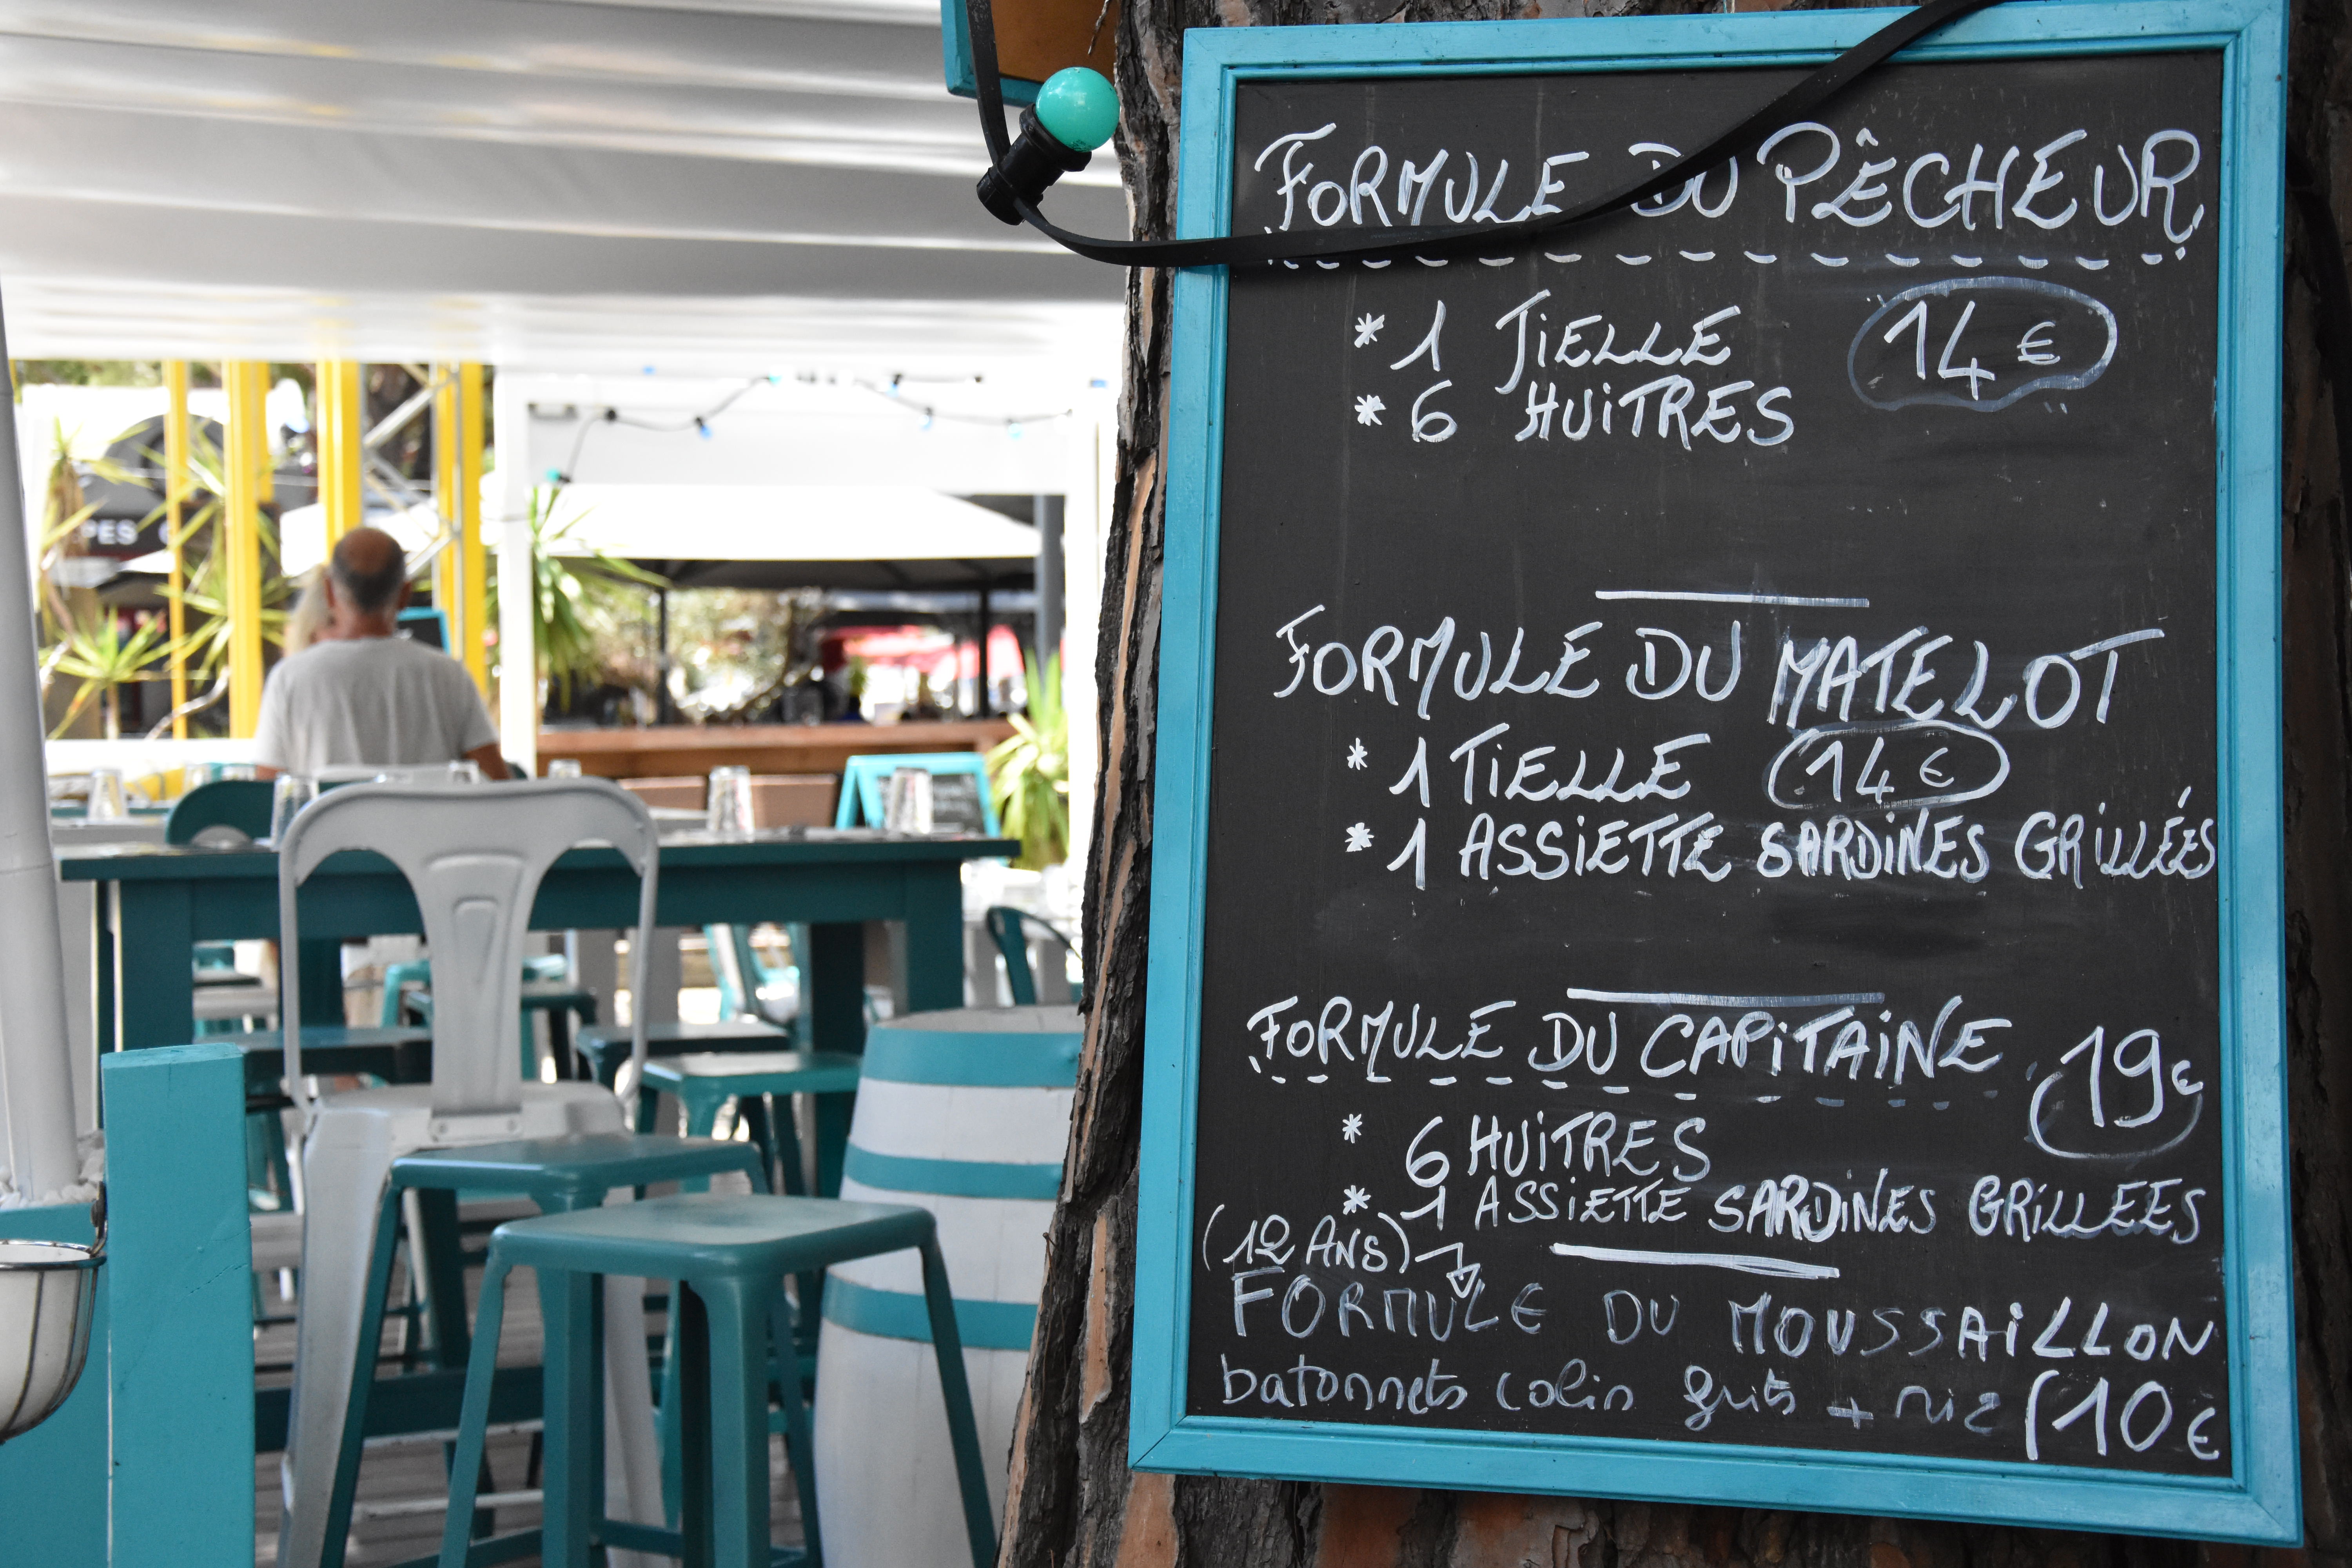 FORMULE DU PÊCHEUR
* 1 TIELLE 14 €
* 6 HUiTRES
FORMULE DU MATELOT
* 1 TiELLE 14 €
* 1 ASSiETTE SARDiNES GRiLLÉES
FORMULE DU CAPiTAiNE 19€
* 6 HUiTRES
* 1 ASSiETTE SARDiNES GRiLLEES
(12 ANS)
FORMULE DU MOUSSAiLLON
batonnets colin frits + riz (10 €
PES